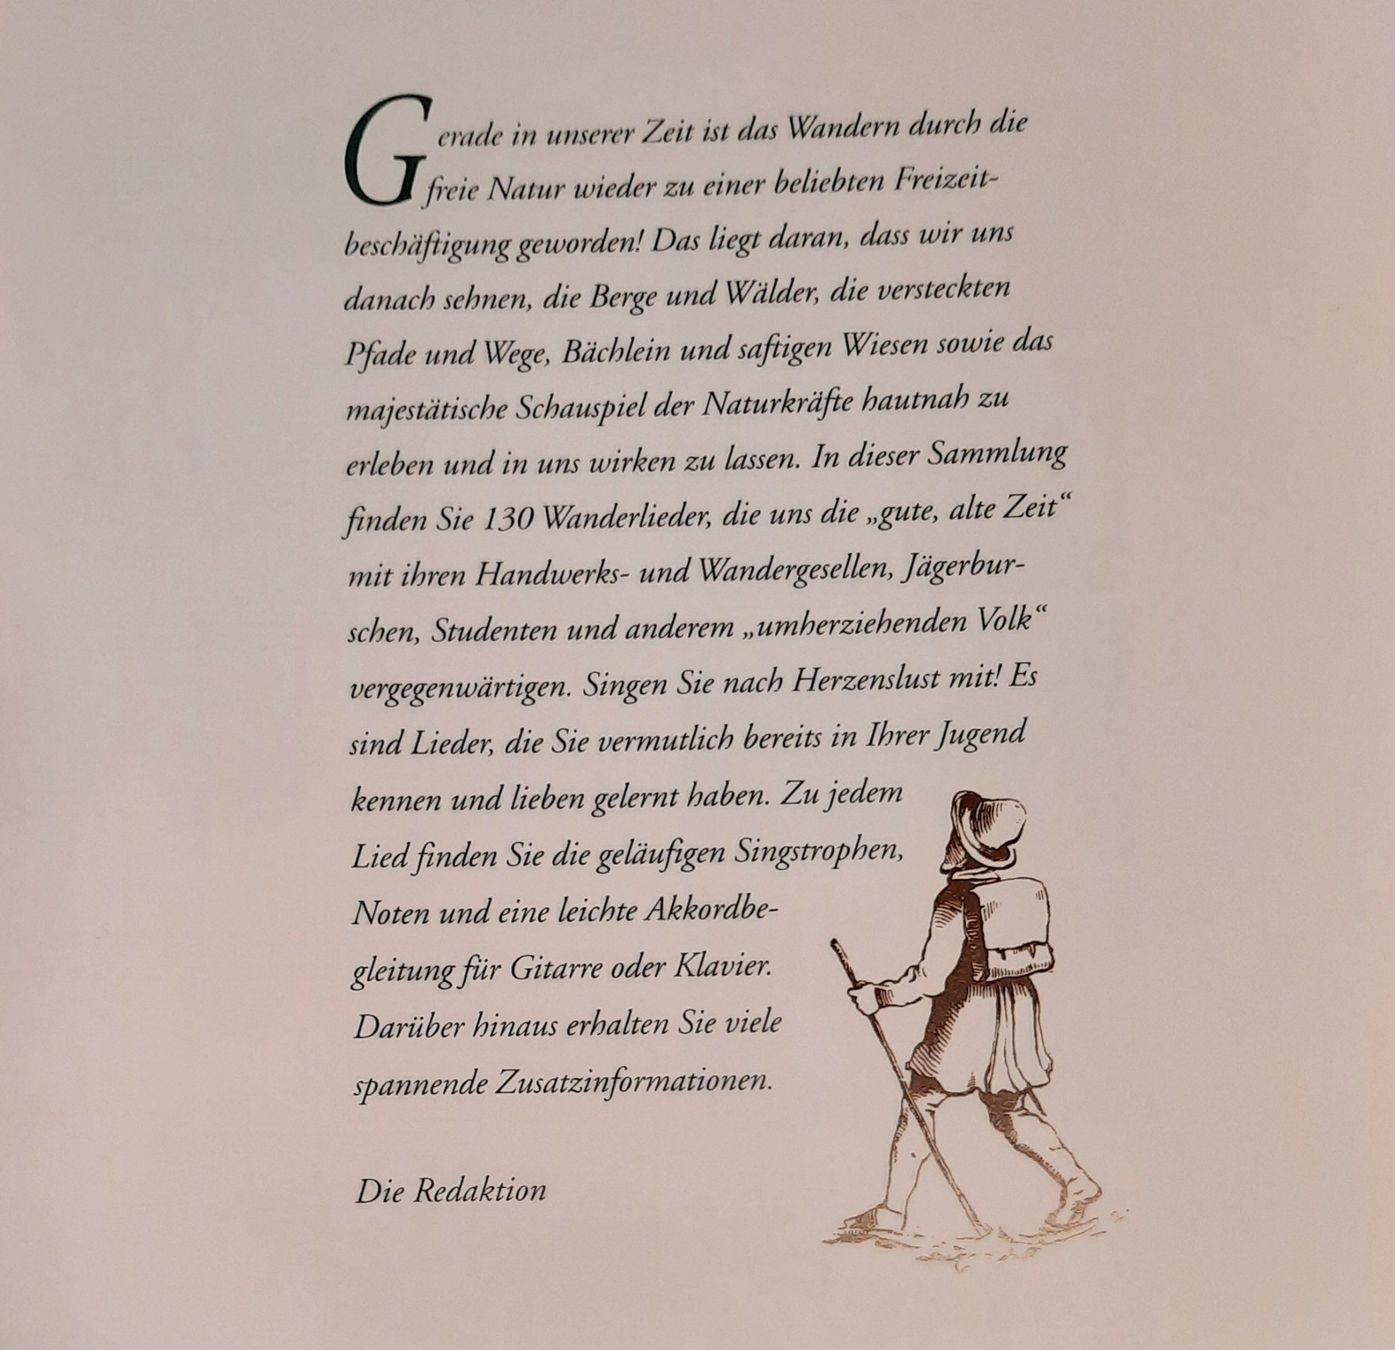 Gerade in unserer Zeit ist das Wandern durch die
freie Natur wieder zu einer beliebten Freizeit-
beschäftigung geworden! Das liegt daran, dass wir uns
danach sehnen, die Berge und Wälder, die versteckten
Pfade und Wege, Bächlein und saftigen Wiesen sowie das
majestätische Schauspiel der Naturkräfte hautnah zu
erleben und in uns wirken zu lassen. In dieser Sammlung
finden Sie 130 Wanderlieder, die uns die „gute, alte Zeit“
mit ihren Handwerks- und Wandergesellen, Jägerbur-
schen, Studenten und anderem „umherziehenden Volk“
vergegenwärtigen. Singen Sie nach Herzenslust mit! Es
sind Lieder, die Sie vermutlich bereits in Ihrer Jugend
kennen und lieben gelernt haben. Zu jedem
Lied finden Sie die geläufigen Singstrophen,
Noten und eine leichte Akkordbe-
gleitung für Gitarre oder Klavier.
Darüber hinaus erhalten Sie viele
spannende Zusatzinformationen.
Die Redaktion